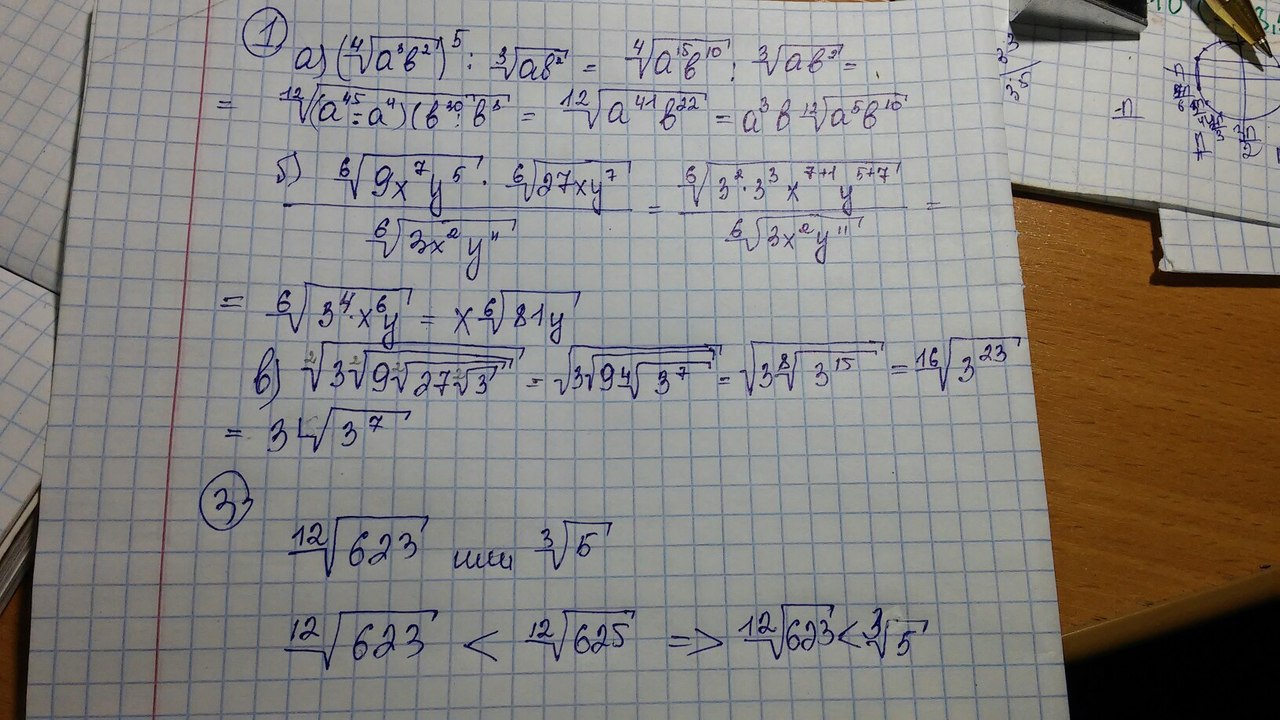 1
а) (⁴√(a³b²))⁵ : ³√(ab²) = ⁴√(a¹⁵b¹⁰) : ³√(ab²) =
= ¹²√((a⁴⁵ : a⁴)(b³⁰ : b⁸) = ¹²√(a⁴¹b²²) = a³b ¹²√(a⁵b¹⁰)
б) (⁶√(9x⁷y⁵) · ⁶√(27xy⁷)) / ⁶√(3x²y¹¹) = ⁶√(3² · 3³ x⁷⁺¹ y⁵⁺⁷) / ⁶√(3x²y¹¹) =
= ⁶√(3⁴ · x⁶y) = x ⁶√(81y)
в) ²√(3 ²√(9 ²√(27 ²√3))) = √(3√(9 ⁴√(3⁷))) = √(3 ⁸√(3¹⁵)) = ¹⁶√(3²³)
= 3 √(3⁷)
3
¹²√623 или ³√5
¹²√623 < ¹²√625 => ¹²√623 < ³√5